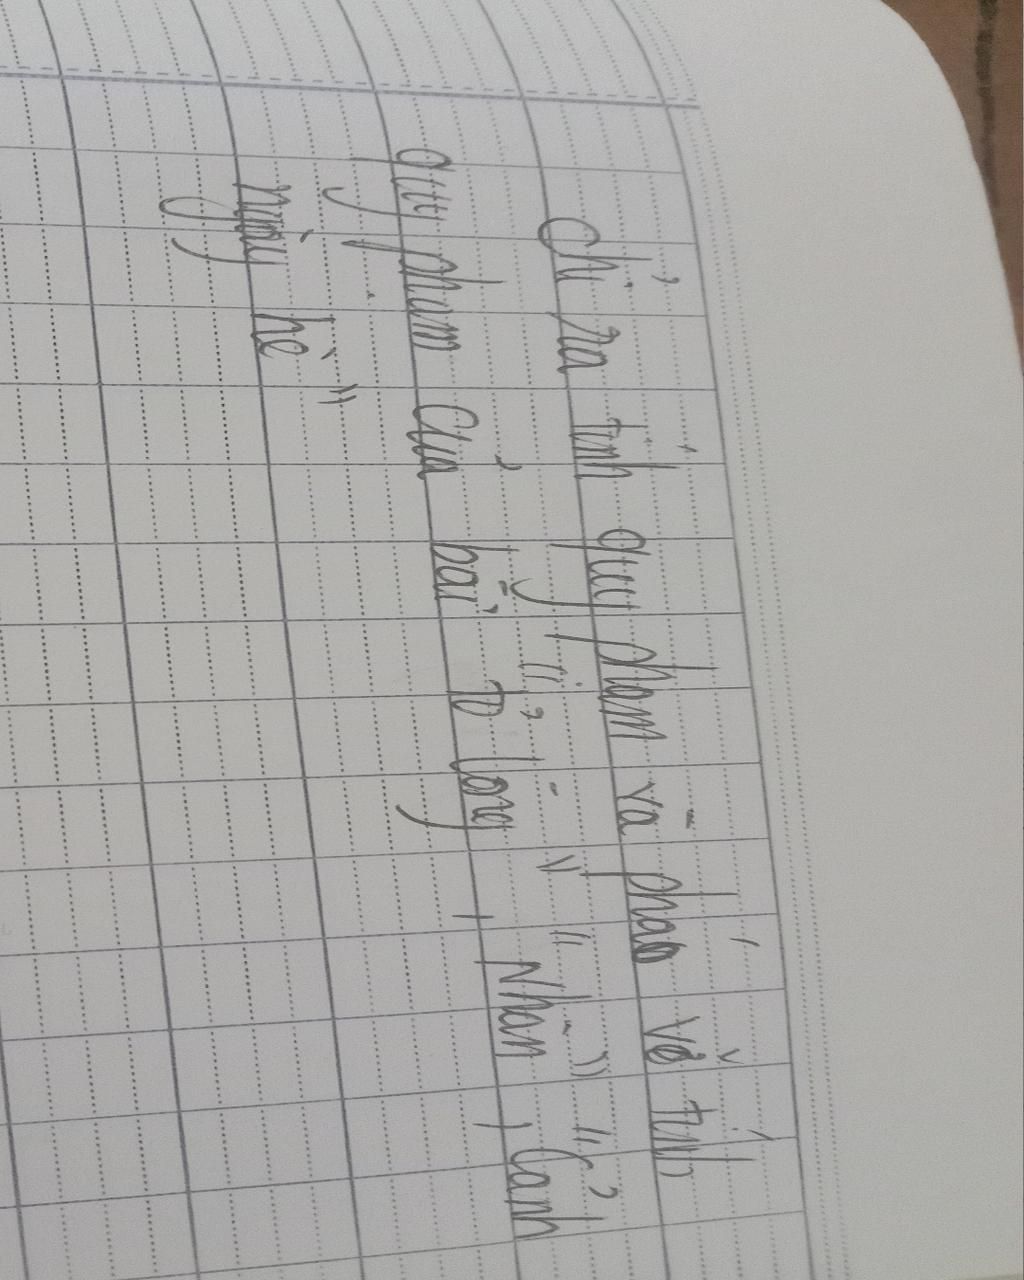 Chỉ ra tính quy phạm và phá vỡ tính
quy phạm của bài "Tỏ lòng", "Nhàn", "Cảnh
ngày hè"